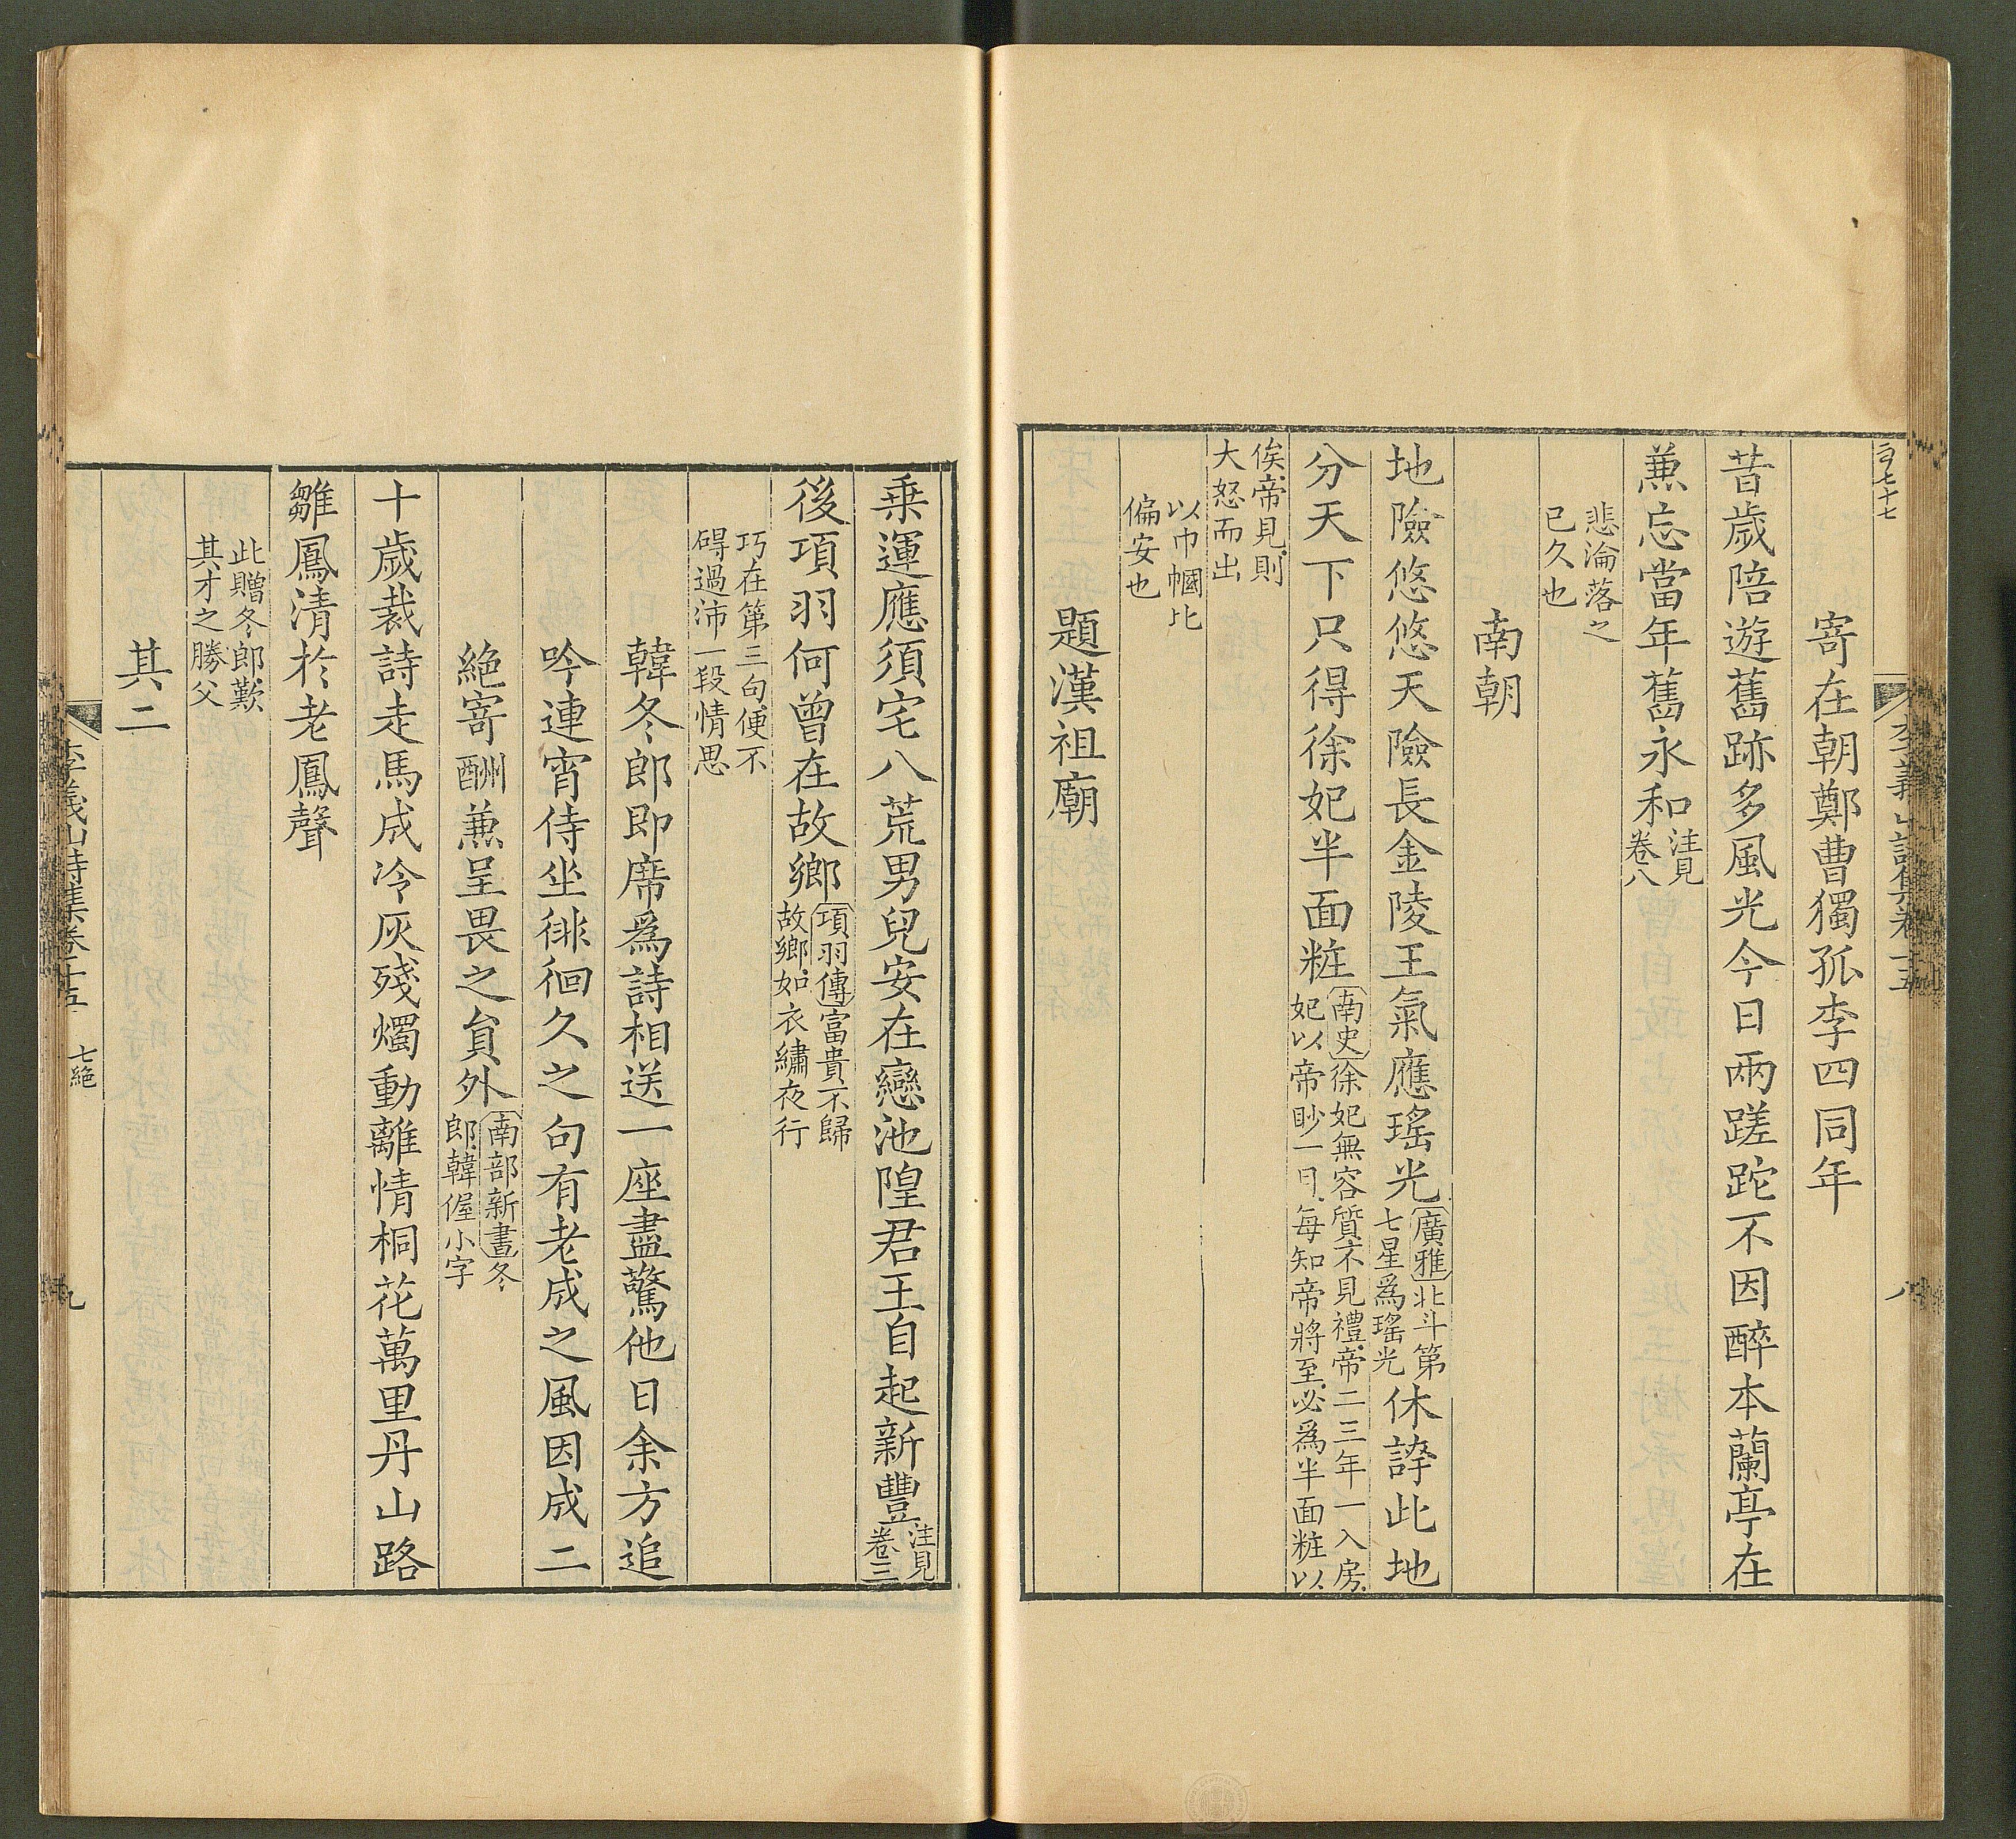 寄在朝鄭曹獨孤李四同年
昔歲陪遊舊跡多風光今日兩蹉跎不因醉本蘭亭在
兼忘當年舊永和注見卷八
悲淪落之
已久也
南朝
地險悠悠天險長金陵王氣應瑤光廣雅北斗第七星爲瑤光休誇此地
分天下只得徐妃半面粧南史徐妃無容質不見禮帝二三年一入房妃以帝眇一目每知帝將至必爲半面粧以
俟帝見則
大怒而出
以巾幗比
偏安也
題漢祖廟
乗運應須宅八荒男兒安在戀池隍君王自起新豐注見卷三
後項羽何曾在故鄉項羽傳富貴不歸故鄉如衣繡夜行
巧在第三句便不
碍過沛一段情思
韓冬郎即席爲詩相送一座盡驚他日余方追
吟連宵侍坐徘徊久之句有老成之風因成二
絶寄酬兼呈畏之貟外南部新書冬郎韓偓小字
十歲裁詩走馬成冷灰殘燭動離情桐花萬里丹山路
雛鳳清於老鳳聲
此贈冬郎歎
其才之勝父
其二
李義山詩集卷十五 七絶 九